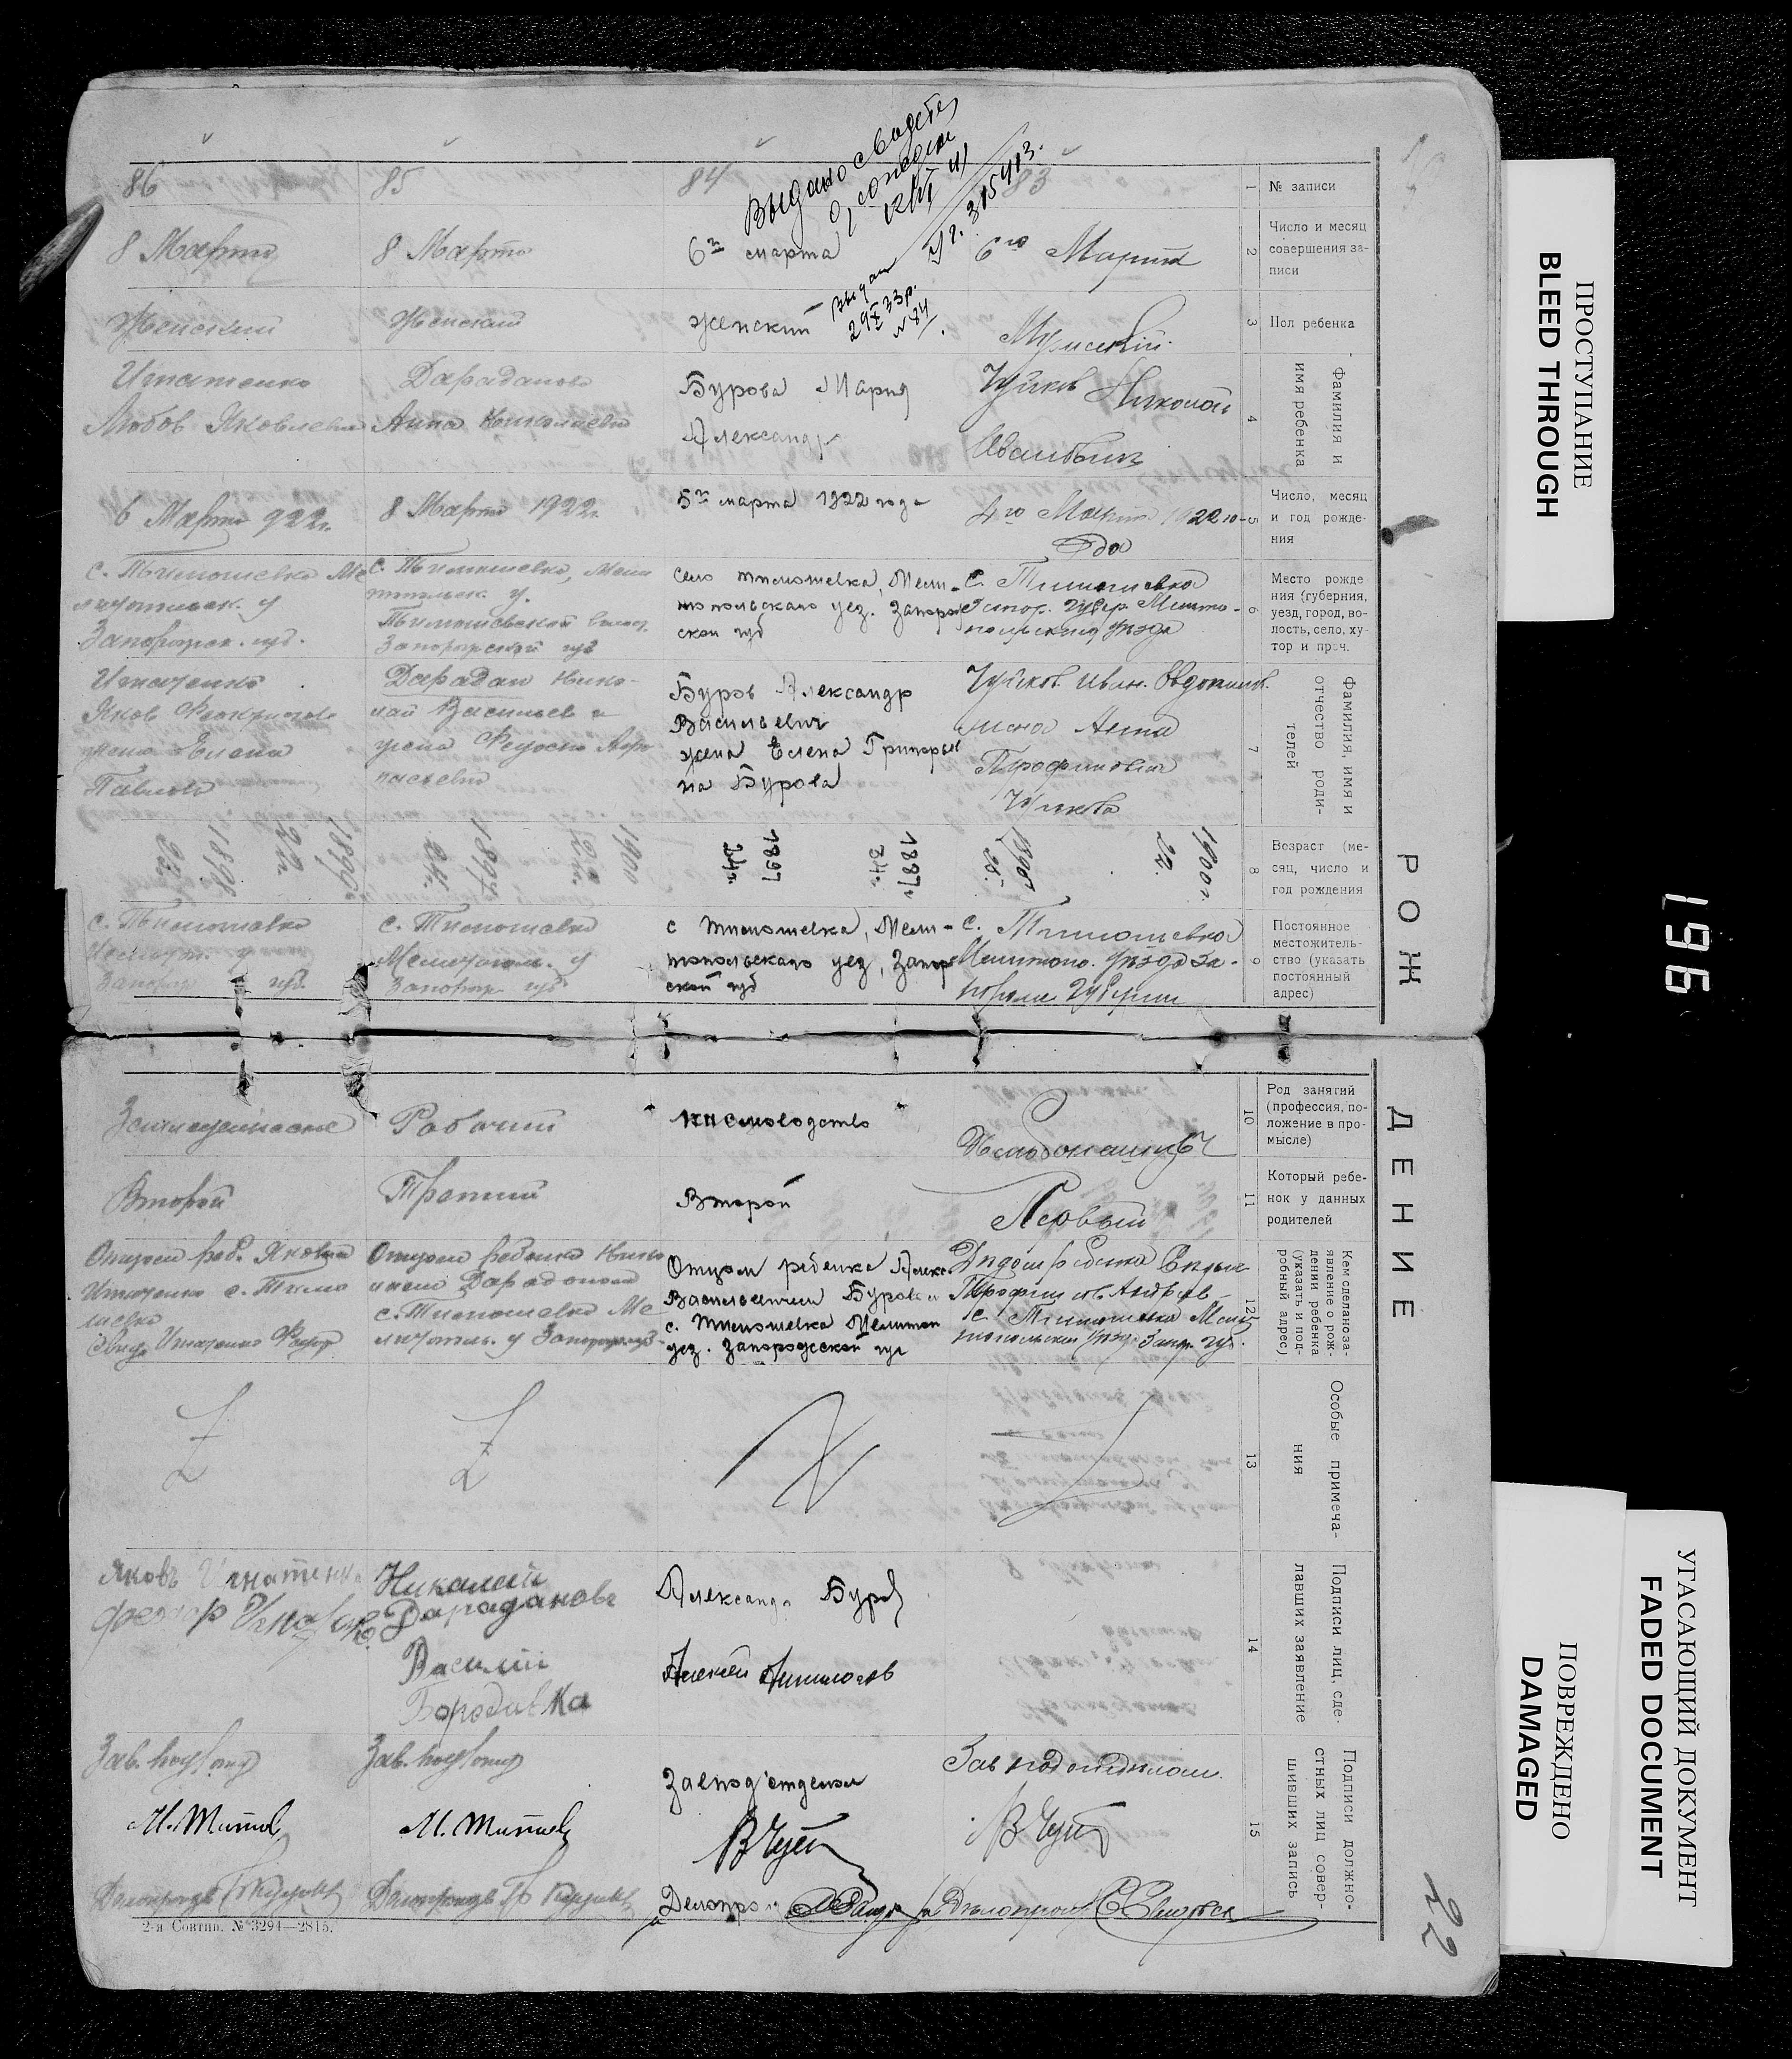 РОЖДЕНИЕ
1
№ записи
83
84
85
86
2
Число и месяц
совершения за-
писи
6го Марта
6го марта
8 Марта
8 Марта
3
Пол ребенка
Мужской
женский
Женский
Женский
Выдано свидет
о рождении
выдан
29 X 33р.
№ 84
4
Фамилия и
имя ребенка
Чуйков Николай
Иванович
Бурова Мария
Александр
Дараданова
Анна Николаевна
Игнатенко
Любов Яковлевна
5
Число, месяц
и год рожде-
ния
4го Марта 1922 го-
да
5го марта 1922 года
8 Марта 1922г.
6 Марта 922г.
6
Место рожде
ния (губерния,
уезд, город, во-
лость, село, ху-
тор и проч.
с. Тимошевка
Запор. губер. Мелито-
польского уезда
село Тимошевка, Мели-
топольскаго уез. Запорож
ской губ
с. Тимошевка, Мели
топольск. у.
Тимошевской волос.
Запорожской губ
с. Тимошевка Ме
литопольск. у
Запорожск. губ.
7
Фамилия, имя и
отчество роди-
телей
Чуйков Иван Овдоким.
жена Анна
Трофимовна
Чуйкова
Буров Александр
Васильевич
жена Елена Григорьев
на Бурова
Дарадан Нико-
лай Васильев и
жена Федосия Афа
насьевна
Игнатенко
Яков
жена Елена
Павлова
8
Возраст (ме-
сяц, число и
год рождения
1900г.
22.
1887г
34г.
1897
24г.
1900
22г.
1897
24г.
1899
22г.
1898
23г.
9
Постоянное
местожитель-
ство (указать
постоянный
адрес)
с. Тимошевка
Мелитопо. уезда За-
порож Губернии
с Тимошевка, Мели-
топольскаго уез, Запор
ской губ
с. Тимошевка
Мелитопол. у
Запорож губ
с. Тимошевка
Мелитоп. у
Запорож губ.
10
Род занятий
(профессия, по-
ложение в про-
мысле)
Хлебопашец
письмоводство
Рабочий
Земледельческое
11
Который ребе-
нок у данных
родителей
Первый
Второй
Третий
Второй
12
Кем сделано за-
явление о рож-
дении ребенка
(указать и под-
робный адрес)
Дедом ребенка
Трофим
с. Тимошевка Мели
топольский уезд. Запор. гу.
Отцом ребенка Алекс
Васильевичем Буровым
с. Тимошевка Мелитоп
уез. Запорожской губ
Отцом ребенка Нико
лаем Дарадановым
с. Тимошевка Ме
литополь. у Запорож губ.
Отцом реб. Яковом
Игнатенко с. Тимо
шевка
свид. Игнатенко Федор
13
Особые примеча-
ния
14
Подписи лиц, сде-
лавших заявление
Александр Буров
Алексей
Николай
Дарадановъ
Василий
Бородавка
Яковъ Игнатенко
Федор Игнатенко
15
Подписи должно-
стных лиц совер-
шивших запись
Зав подотделом
В Чуй
Делопроиз
Завподотделом
В Чуй
Делопроиз
Зав. подотд
М. Титов
Делопроизв
Зав. подотд
М. Титов
Делопроизв
2-я Совтип. № 3294—2815.
22
196
ПРОСТУПАНИЕ
BLEED THROUGH
УГАСАЮЩИЙ ДОКУМЕНТ
FADED DOCUMENT
ПОВРЕЖДЕНО
DAMAGED